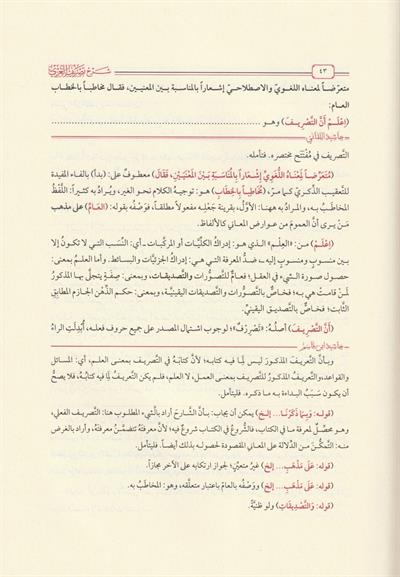 ٤٣ شرح تصريف العزي
متعرّضاً لمعناه اللغويّ والاصطلاحيّ إشعاراً بالمناسبة بين المعنيين، فقال مخاطباً بالخطاب
العام:
(اِعْلَمْ أَنَّ التَّصْرِيفَ) وهو
حاشية اللقاني
التصريف في مُفْتَتَح مختصره. فتأمله.
(مُتَعَرِّضاً لِمَعْنَاهُ اللُّغَوِيِّ إِشْعَاراً بِالْمُنَاسَبَةِ بَيْنَ الْمَعْنَيَيْنِ، فَقَالَ) معطوف على: (بدأ) بالفاء المفيدة
للتعقيب الذِّكري كما مرّ، (مُخَاطِباً بِالْخِطَابِ) هو: توجيهُ الكلام نحو الغير، ويُرادُ به كثيراً: اللفظُ
المخاطَبُ به، والمرادُ به ههنا: الأوَّل، بقرينة جَعْلِه مفعولاً مطلقاً، فوَصْفُه بقوله: (الْعَامِّ) على مذهب
مَنْ يرى أنَّ العمومَ من عوارض المعاني كالألفاظ.
(اِعْلَمْ) من: «العِلْم» الذي هو: إدراكُ الكلِّيَّات أو المركَّبات ـ أي: النِّسَب التي لا تكونُ إلا
بين منسوبٍ ومنسوبٍ إليه ـ ضدُّ المعرفة التي هي: إدراكُ الجزئيَّات والبسائط. وأما العلمُ بمعنى:
حصول صورة الشيء في العقل؛ فعامٌّ للتصوُّرات والتصديقات، وبمعنى: صفةٍ يتجلَّى بها المذكورُ
لمَنْ قامت هي به؛ فخاصٌّ بالتَّصوُّرات والتصديقات اليقينيَّة، وبمعنى: حكم الذِّهن الجازم المطابق
الثَّابت؛ فخاصٌّ بالتصديق اليقينيِّ.
(أَنَّ التَّصْرِيفَ) أصلُهُ: «تَصْرِرْفٌ»؛ لوجوب اشتمال المصدر على جميع حروف فعله، أُبْدِلَتِ الراءُ
حاشية ابن قاسم
وبأنَّ التعريفَ المذكورَ ليس لِمَا فيه كتابه؛ لأنَّ كتابَهُ في التصريف بمعنى العلم، أي: المسائل
والقواعد، والتعريفُ المذكورُ للتصريف بمعنى العمل، لا العلم، فلم يكن التعريفُ لِمَا فيه كتابُهُ، فلا يصحُّ
أن يكون سَبَبُ البداءة به ما ذكره. فليتأمل.
(قوله: وَبِمَا ذَكَرْنَا... إلخ) يمكن أن يجاب: بأنَّ الشارحَ أراد بالشَّيء المطلوب هنا: التصريفَ الفعليَّ،
وهو محصِّلٌ لمعرفة ما في الكتاب، فالشُّروعُ في الكتاب شروعٌ فيه؛ لأنَّ معرفتَهُ تتضمَّنُ معرفتَهُ، وأراد بالغرض
منه: التمكُّنَ من الدِّلالة على المعاني المقصودة لحصوله بذلك أيضاً. فليتأمل.
(قوله: عَلَى مَذْهَبِ... إلخ) غيرُ متعيِّنٍ؛ لجواز ارتكابه على الآخر مجازاً.
(قوله: عَلَى مَذْهَبِ... إلخ) ووَصْفُه بالعامِّ باعتبار متعلَّقه، وهو: المخاطَبُ به.
(قوله: وَالتَّصْدِيقَاتِ) ولو ظنيَّةً.